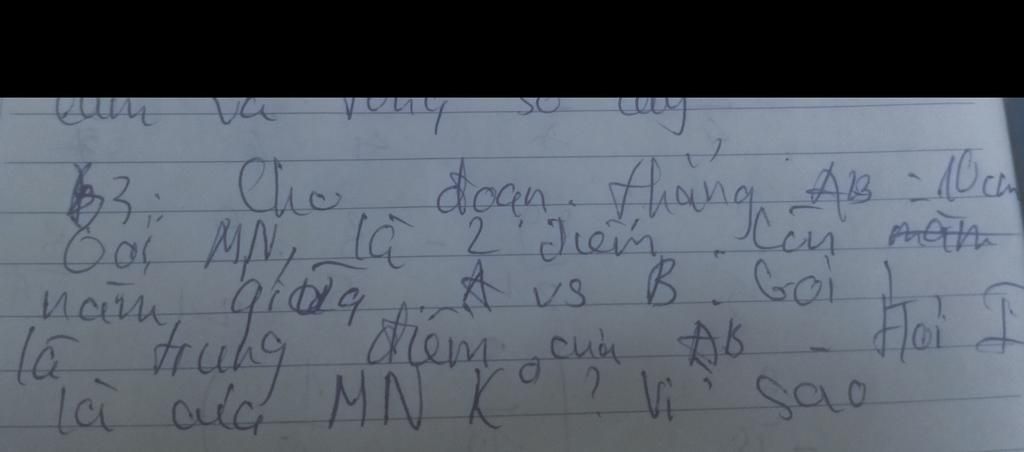 và vòng số
b3: Cho đoạn thẳng AB = 10 cm
Gọi MN, là 2 điểm. nằm
nằm giữa A vs B. Gọi I
là trung điểm của AB - Hỏi I
là của MN K° ? Vì sao